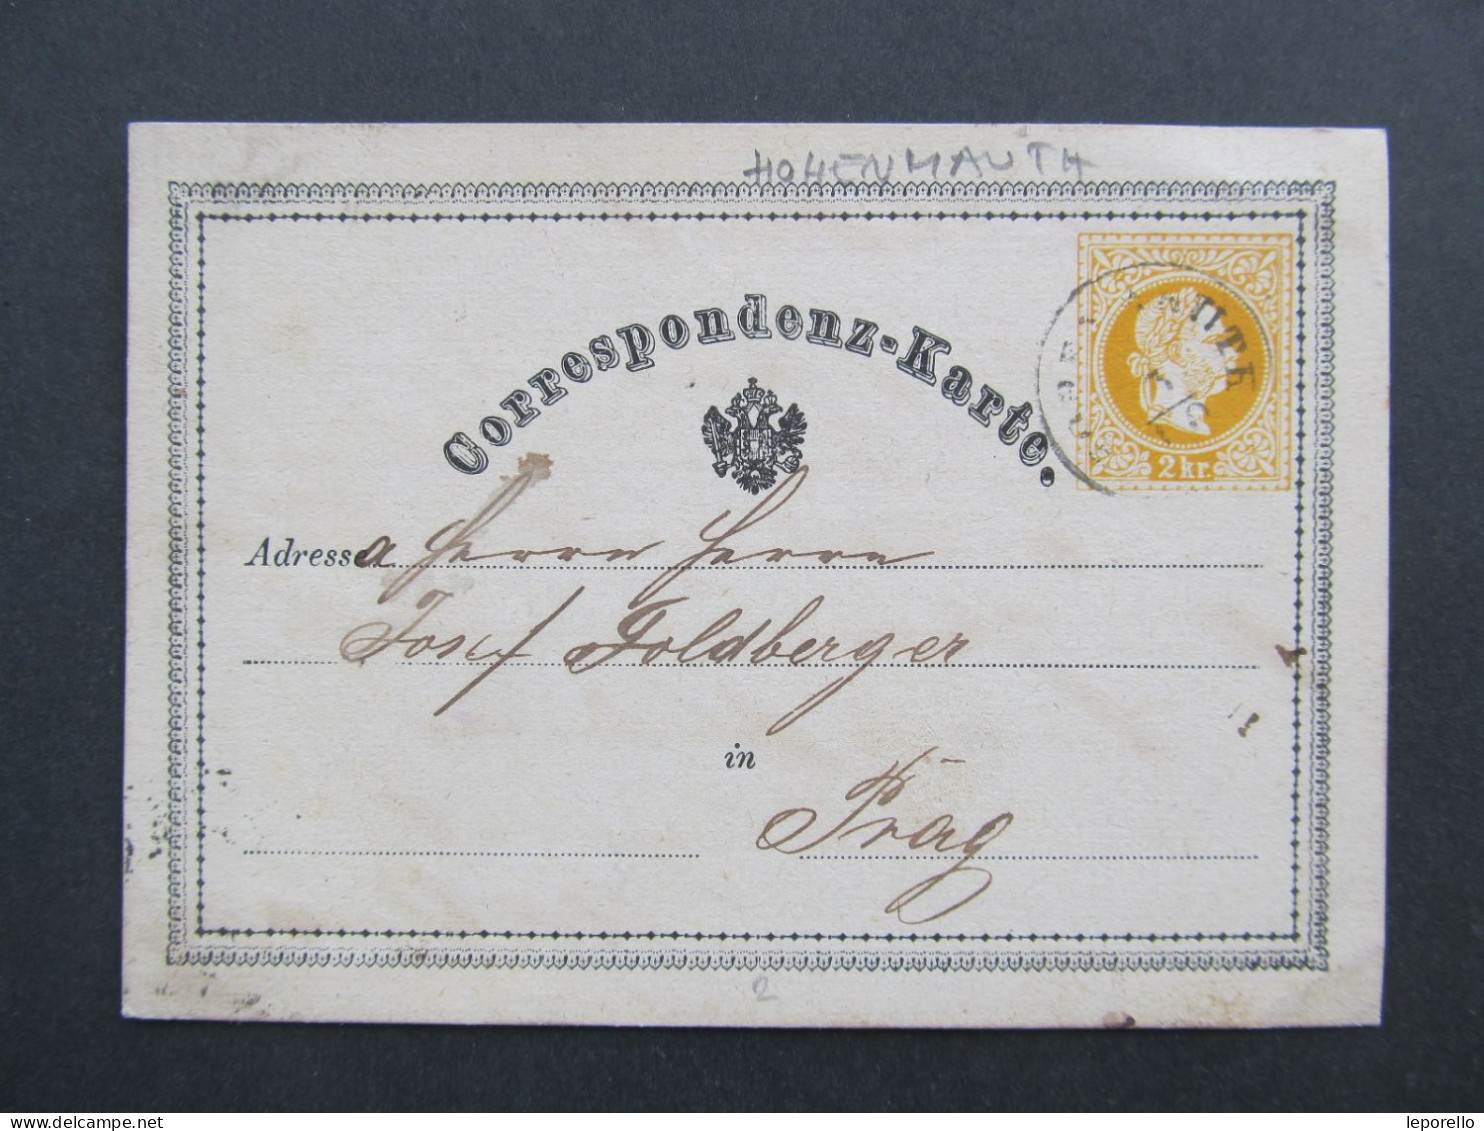 HOHENMAUTH
Correspondenz-Karte.
HOHENMAUTH
2 kr.
Adresse a Herrn Herrn
Josef Goldberger
in
Prag
2
http://www.delcampe.net
leporello